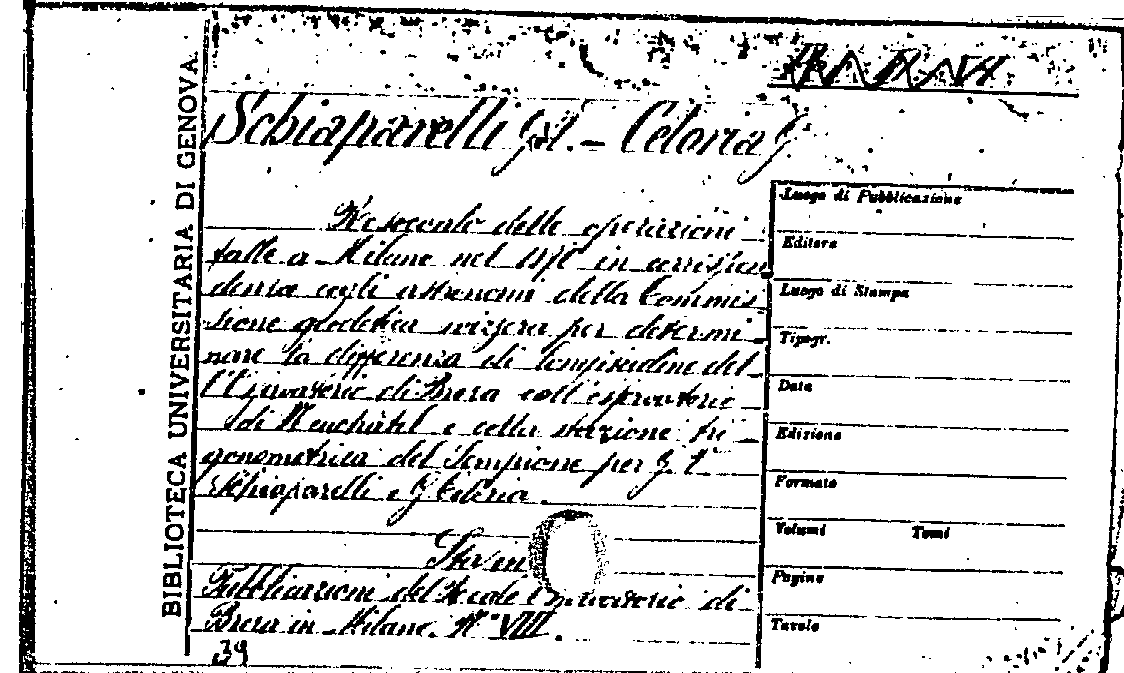 BIBLIOTECA UNIVERSITARIA DI GENOVA.
Schiaparelli G. V. - Celoria G
Resoconto delle operazioni
fatte a Milano nel 1870 in corrispon
denza cogli astronomi della Commis
sione geodetica svizzera per determi
nare la differenza di longitudine del
l'Osservatorio di Brera coll'osservatorio
di Neuchâtel e colla stazione tri
gonometrica del Sempione per G. V.
Schiaparelli e G Celoria.
Sta in
Pubblicazioni del Reale Osservatorio di
Brera in Milano. N° VIII.
39
Luogo di Pubblicazione
Editore
Luogo di Stampa
Tipogr.
Data
Edizione
Formato
Volumi Tomi
Pagine
Tavole